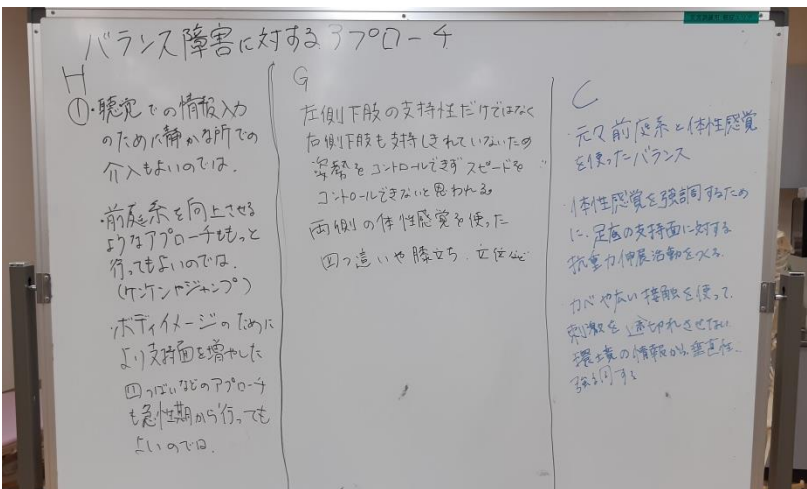 バランス障害に対するアプローチ
H
①・聴覚での情報入力
のために静かな所での
介入もよいのでは.
・前庭系を向上させる
ようなアプローチももっと
行ってもよいのでは.
(ケンケンやジャンプ)
・ボディイメージのために
より支持面を増やした
四つばいなどのアプローチ
も急性期から行っても
よいのでは.
G
左側下肢の支持性だけではなく
右側下肢も支持しきれていないため
姿勢をコントロールできずスピードを
コントロールできないと思われる。
両側の体性感覚を使った
四つ這いや膝立ち、立位など
C
・元々前庭系と体性感覚
を使ったバランス
・体性感覚を強調するため
に、足底の支持面に対する
抗重力伸展活動をつくる.
カベや広い接触を使って、
刺激を途切れさせない
環境の情報から垂直性.
強調する